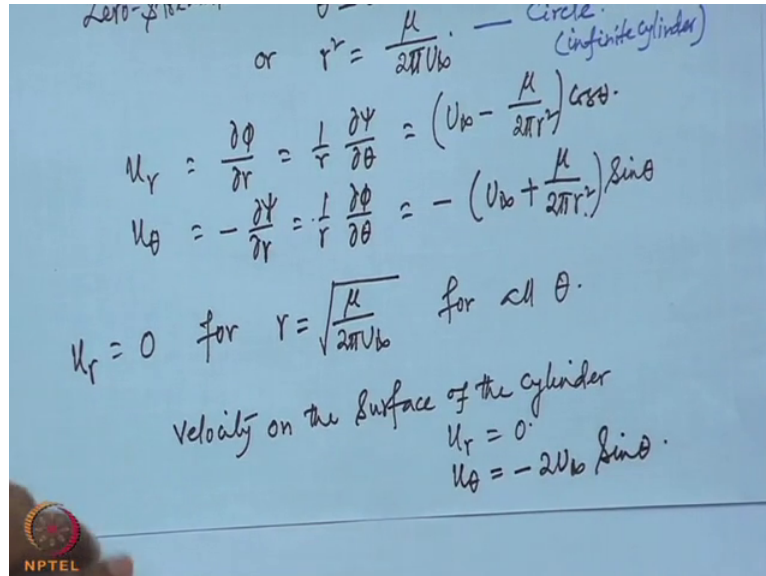 Zero-
or r² = μ/2πU∞. — Circle.
(infinite cylinder)
u_r = ∂φ/∂r = 1/r ∂ψ/∂θ = (U∞ - μ/2πr²) cosθ.
u_θ = -∂ψ/∂r = 1/r ∂φ/∂θ = - (U∞ + μ/2πr²) sinθ
u_r = 0 for r = √(μ/2πU∞) for all θ.
Velocity on the surface of the cylinder
u_r = 0.
u_θ = -2U∞ sinθ.
NPTEL